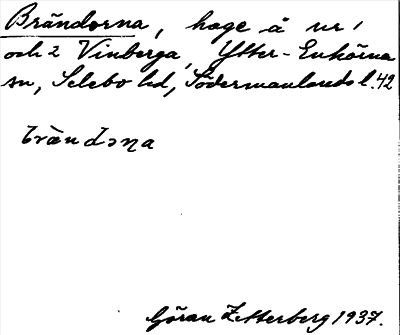 Brändorna, hage å nr 1
och 2 Vinberga, Ytter-Enhörna
sn, Selebo hd, Södermanlands l. 42
brὰndəna
Göran Zetterberg 1937.